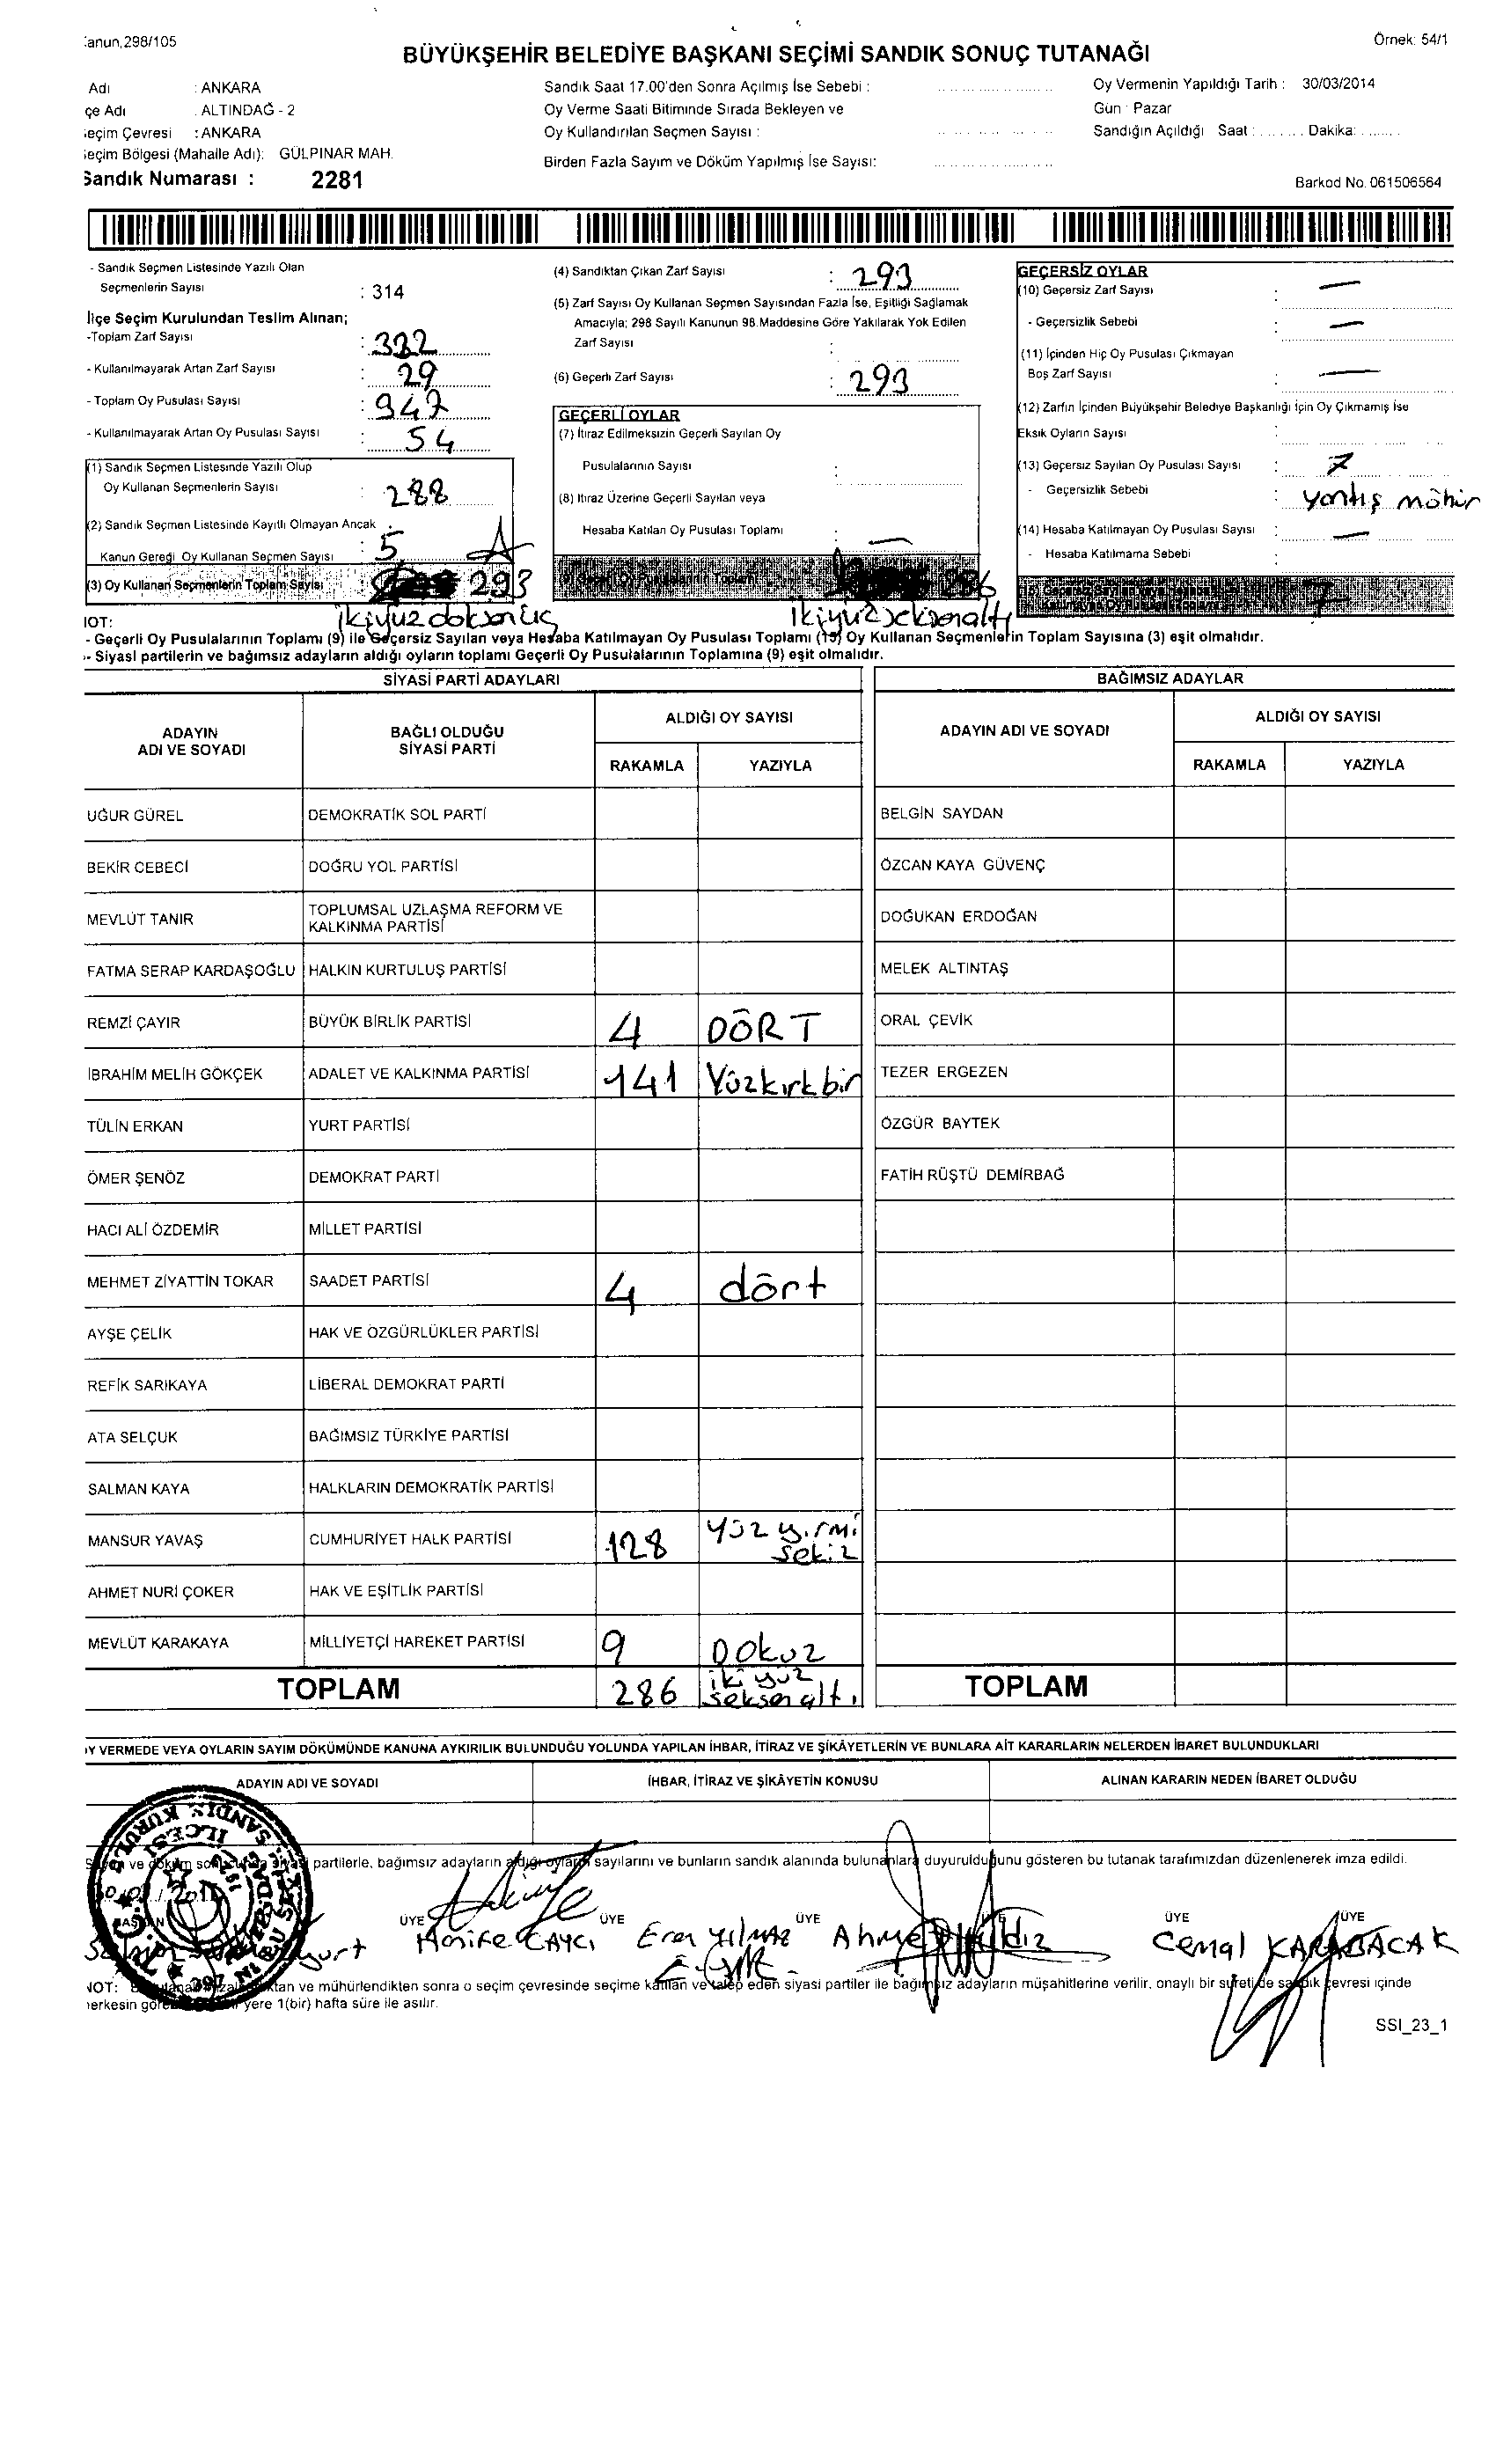 Kanun,298/105
Örnek: 54/1
BÜYÜKŞEHİR BELEDİYE BAŞKANI SEÇİMİ SANDIK SONUÇ TUTANAĞI
Adı : ANKARA
çe Adı : ALTINDAĞ - 2
eçim Çevresi : ANKARA
eçim Bölgesi (Mahalle Adı): GÜLPINAR MAH.
Sandık Numarası : 2281
Sandık Saat 17.00'den Sonra Açılmış İse Sebebi :
Oy Verme Saati Bitiminde Sırada Bekleyen ve
Oy Kullandırılan Seçmen Sayısı :
Birden Fazla Sayım ve Döküm Yapılmış İse Sayısı:
Oy Vermenin Yapıldığı Tarih : 30/03/2014
Gün : Pazar
Sandığın Açıldığı Saat : ........ Dakika: ........
Barkod No. 061506564
- Sandık Seçmen Listesinde Yazılı Olan
Seçmenlerin Sayısı : 314
İlçe Seçim Kurulundan Teslim Alınan;
-Toplam Zarf Sayısı : 322
- Kullanılmayarak Artan Zarf Sayısı : 29
- Toplam Oy Pusulası Sayısı : 347
- Kullanılmayarak Artan Oy Pusulası Sayısı : 54
(1) Sandık Seçmen Listesinde Yazılı Olup
Oy Kullanan Seçmenlerin Sayısı : 288
(2) Sandık Seçmen Listesinde Kayıtlı Olmayan Ancak
Kanun Gereği Oy Kullanan Seçmen Sayısı : 5
(3) Oy Kullanan Seçmenlerin Toplam Sayısı 293
ikiyüzdoksanüç
(4) Sandıktan Çıkan Zarf Sayısı : 293
(5) Zarf Sayısı Oy Kullanan Seçmen Sayısından Fazla İse, Eşitliği Sağlamak
Amacıyla; 298 Sayılı Kanunun 98.Maddesine Göre Yakılarak Yok Edilen
Zarf Sayısı :
(6) Geçerli Zarf Sayısı : 293
GEÇERLİ OYLAR
(7) İtiraz Edilmeksizin Geçerli Sayılan Oy
Pusulalarının Sayısı :
(8) İtiraz Üzerine Geçerli Sayılan veya
Hesaba Katılan Oy Pusulası Toplamı : —
(9) Geçerli Oy Pusulalarının Toplamı 286
ikiyüzseksenaltı
GEÇERSİZ OYLAR
(10) Geçersiz Zarf Sayısı : —
- Geçersizlik Sebebi : —
(11) İçinden Hiç Oy Pusulası Çıkmayan
Boş Zarf Sayısı : —
(12) Zarfın İçinden Büyükşehir Belediye Başkanlığı İçin Oy Çıkmamış İse
Eksik Oyların Sayısı :
(13) Geçersiz Sayılan Oy Pusulası Sayısı : 7
- Geçersizlik Sebebi : yanlış mühür
(14) Hesaba Katılmayan Oy Pusulası Sayısı : —
- Hesaba Katılmama Sebebi :
(15) Geçersiz Sayılan veya Hesaba
Katılmayan Oy Pusulası Toplamı 7
NOT:
- Geçerli Oy Pusulalarının Toplamı (9) ile Geçersiz Sayılan veya Hesaba Katılmayan Oy Pusulası Toplamı (15) Oy Kullanan Seçmenlerin Toplam Sayısına (3) eşit olmalıdır.
- Siyasi partilerin ve bağımsız adayların aldığı oyların toplamı Geçerli Oy Pusulalarının Toplamına (9) eşit olmalıdır.
SİYASİ PARTİ ADAYLARI
ADAYIN ADI VE SOYADI
BAĞLI OLDUĞU SİYASİ PARTİ
ALDIĞI OY SAYISI
RAKAMLA YAZIYLA
UĞUR GÜREL DEMOKRATİK SOL PARTİ
BEKİR CEBECİ DOĞRU YOL PARTİSİ
MEVLÜT TANIR TOPLUMSAL UZLAŞMA REFORM VE KALKINMA PARTİSİ
FATMA SERAP KARDAŞOĞLU HALKIN KURTULUŞ PARTİSİ
REMZİ ÇAYIR BÜYÜK BİRLİK PARTİSİ 4 DÖRT
İBRAHİM MELİH GÖKÇEK ADALET VE KALKINMA PARTİSİ 141 Yüzkırkbir
TÜLİN ERKAN YURT PARTİSİ
ÖMER ŞENÖZ DEMOKRAT PARTİ
HACI ALİ ÖZDEMİR MİLLET PARTİSİ
MEHMET ZİYATTİN TOKAR SAADET PARTİSİ 4 dört
AYŞE ÇELİK HAK VE ÖZGÜRLÜKLER PARTİSİ
REFİK SARIKAYA LİBERAL DEMOKRAT PARTİ
ATA SELÇUK BAĞIMSIZ TÜRKİYE PARTİSİ
SALMAN KAYA HALKLARIN DEMOKRATİK PARTİSİ
MANSUR YAVAŞ CUMHURİYET HALK PARTİSİ 128 yüz yirmi sekiz
AHMET NURİ ÇOKER HAK VE EŞİTLİK PARTİSİ
MEVLÜT KARAKAYA MİLLİYETÇİ HAREKET PARTİSİ 9 Dokuz
TOPLAM 286 iki yüz seksen altı
BAĞIMSIZ ADAYLAR
ADAYIN ADI VE SOYADI
ALDIĞI OY SAYISI
RAKAMLA YAZIYLA
BELGİN SAYDAN
ÖZCAN KAYA GÜVENÇ
DOĞUKAN ERDOĞAN
MELEK ALTINTAŞ
ORAL ÇEVİK
TEZER ERGEZEN
ÖZGÜR BAYTEK
FATİH RÜŞTÜ DEMİRBAĞ
TOPLAM
OY VERMEDE VEYA OYLARIN SAYIM DÖKÜMÜNDE KANUNA AYKIRILIK BULUNDUĞU YOLUNDA YAPILAN İHBAR, İTİRAZ VE ŞİKÂYETLERİN VE BUNLARA AİT KARARLARIN NELERDEN İBARET BULUNDUKLARI
ADAYIN ADI VE SOYADI
İHBAR, İTİRAZ VE ŞİKÂYETİN KONUSU
ALINAN KARARIN NEDEN İBARET OLDUĞU
Sayım ve döküm sonucunda siyasi partilerle, bağımsız adayların aldığı oyların sayılarını ve bunların sandık alanında bulunanlara duyurulduğunu gösteren bu tutanak tarafımızdan düzenlenerek imza edildi.
BAŞKAN ÜYE ÜYE ÜYE ÜYE ÜYE ÜYE
Hanife ÇAYCI Eren Yılmaz Ahmet Yıldız Cemal KARABACAK
NOT: ve mühürlendikten sonra o seçim çevresinde seçime katılan ve talep eden siyasi partiler ile bağımsız adayların müşahitlerine verilir, onaylı bir sureti de sandık çevresi içinde
herkesin yere 1(bir) hafta süre ile asılır.
SSI_23_1